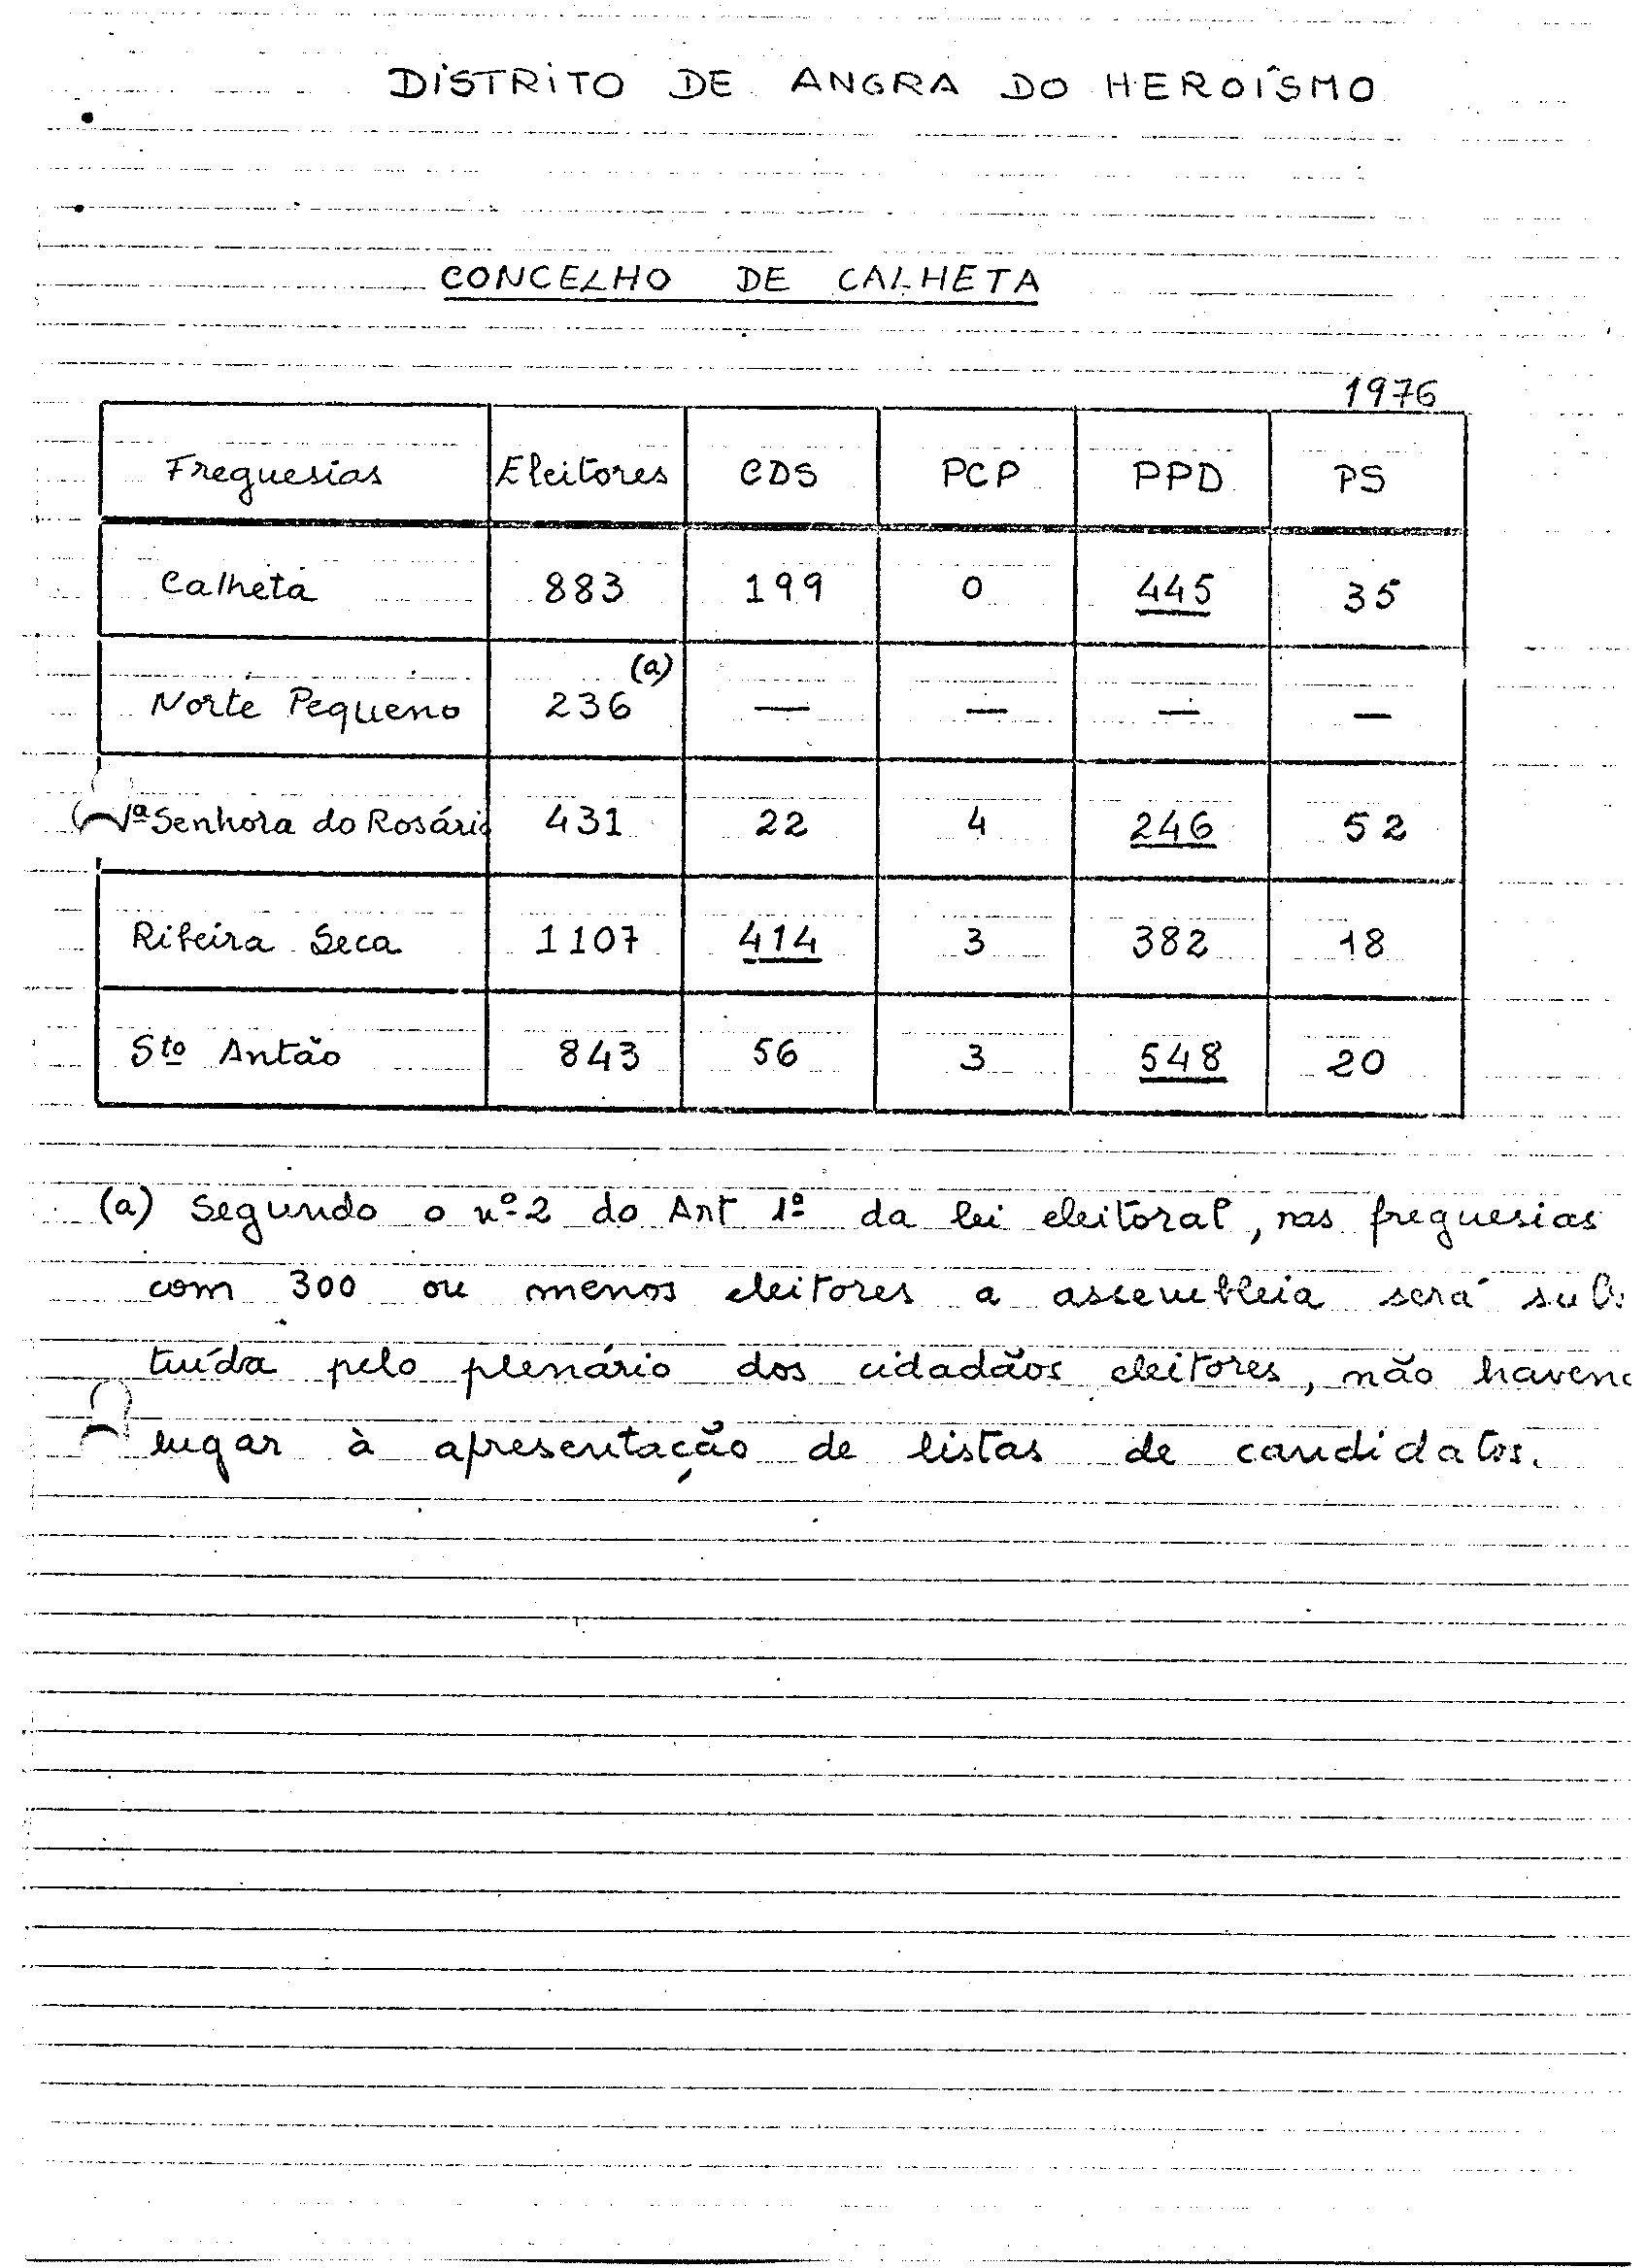 DISTRITO DE ANGRA DO HEROÍSMO
CONCELHO DE CALHETA
1976
Freguesias Eleitores CDS PCP PPD PS
Calheta 883 199 0 445 35
Norte Pequeno 236 (a) — — — —
Nª Senhora do Rosário 431 22 4 246 52
Ribeira Seca 1107 414 3 382 18
Sto Antão 843 56 3 548 20
(a) Segundo o nº 2 do Art 1º da lei eleitoral, nas freguesias
com 300 ou menos eleitores a assembleia será subs
tuída pelo plenário dos cidadãos eleitores, não haven
lugar à apresentação de listas de candidatos.